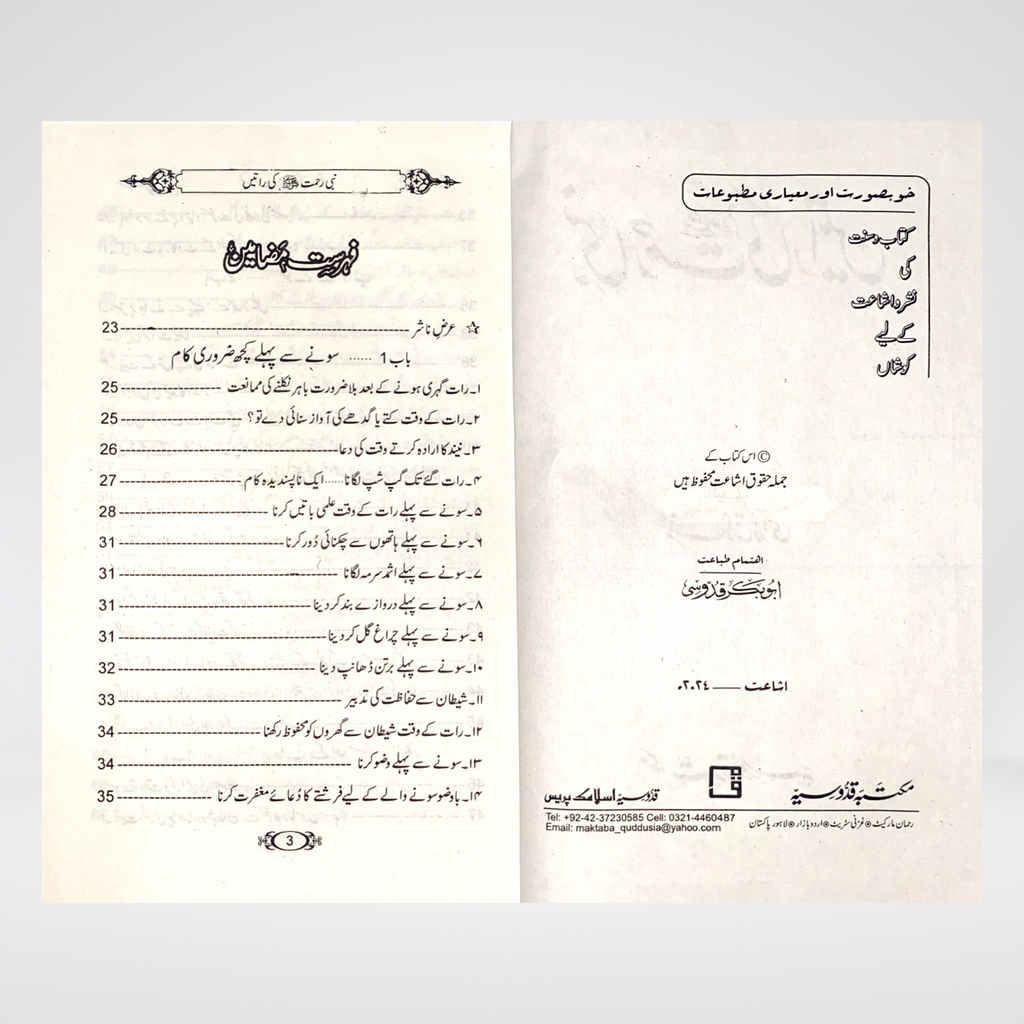 خوبصورت اور معیاری مطبوعات
کتاب وسنت
کی
نشر و اشاعت
کے لیے
کوشاں
© اس کتاب کے
جملہ حقوق اشاعت محفوظ ہیں
اهتمام طباعت
ابوبکر قدوسی
اشاعت —— ۲۰۲۴ء
مکتبہ قدوسیہ
قدوسیہ اسلامک پریس
Tel: +92-42-37230585 Cell: 0321-4460487
Email: maktaba_quddusia@yahoo.com
رحمان مارکیٹ ⊙ غزنی سٹریٹ ⊙ اردو بازار ⊙ لاہور پاکستان
نبی رحمت ﷺ کی راتیں
فہرست مضامین
☆ عرض ناشر ------ 23
باب 1 ...... سونے سے پہلے کچھ ضروری کام
۱۔ رات گہری ہونے کے بعد بلا ضرورت باہر نکلنے کی ممانعت ------ 25
۲۔ رات کے وقت کتے یا گدھے کی آواز سنائی دے تو؟ ------ 25
۳۔ نیند کا ارادہ کرتے وقت کی دعا ------ 26
۴۔ رات گئے تک گپ شپ لگانا...... ایک ناپسندیدہ کام ------ 27
۵۔ سونے سے پہلے رات کے وقت علمی باتیں کرنا ------ 28
۶۔ سونے سے پہلے ہاتھوں سے چکنائی دُور کرنا ------ 31
۷۔ سونے سے پہلے اثمد سرمہ لگانا ------ 31
۸۔ سونے سے پہلے دروازے بند کر دینا ------ 31
۹۔ سونے سے پہلے چراغ گل کر دینا ------ 31
۱۰۔ سونے سے پہلے برتن ڈھانپ دینا ------ 32
۱۱۔ شیطان سے حفاظت کی تدبیر ------ 33
۱۲۔ رات کے وقت شیطان سے گھروں کو محفوظ رکھنا ------ 34
۱۳۔ سونے سے پہلے وضو کرنا ------ 34
۱۴۔ باوضو سونے والے کے لیے فرشتے کا دُعائے مغفرت کرنا ------ 35
3